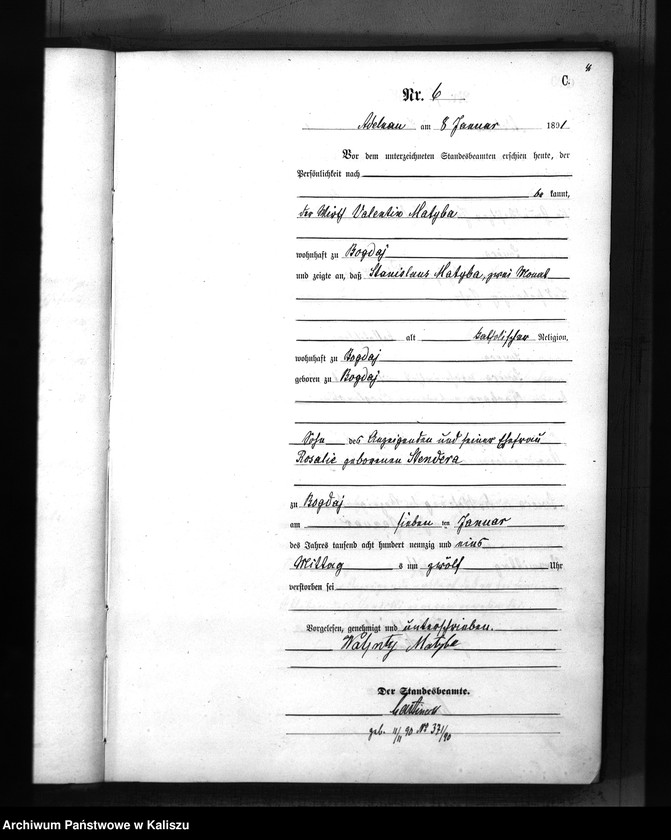 C.
Nr. 6
Adelnau am 8 Januar 1891
Vor dem unterzeichneten Standesbeamten erschien heute, der
Persönlichkeit nach
be kannt,
der Wirth Valentin Matyba
wohnhaft zu Bogdaj
und zeigte an, daß Stanislaus Matyba, zwei Monat
alt katholischer Religion,
wohnhaft zu Bogdaj
geboren zu Bogdaj
Sohn des Anzeigenden und seiner Ehefrau
Rosalie geborenen Stendera
zu Bogdaj
am sieben ten Januar
des Jahres tausend acht hundert neunzig und eins
Mittag s um zwölf Uhr
verstorben sei
Vorgelesen, genehmigt und unterschrieben.
Walenty Matyba
Der Standesbeamte.
geb. 11/11 90 No 371/90
Archiwum Państwowe w Kaliszu